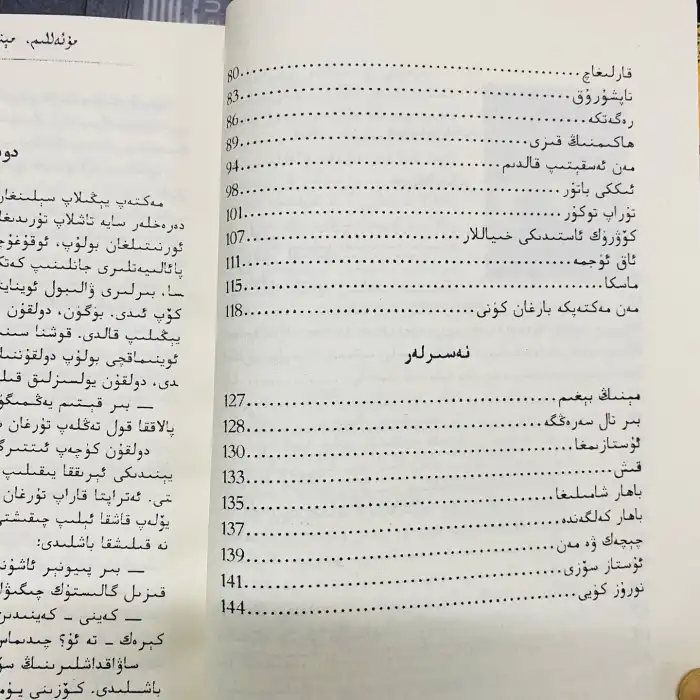 قارلىغاچ 80
تاپشۇرۇق 83
رەگەتكە 86
ھاكىمنىڭ قىزى 89
مەن ئەسقېتىپ قالدىم 94
ئىككى باتۇر 98
تۇراپ توكۇر 101
كۆۋرۈك ئاستىدىكى خىياللار 107
ئاق ئۈجمە 111
ماسكا 115
مەن مەكتەپكە بارغان كۈنى 118
نەسىرلەر
مېنىڭ بېغىم 127
بىر تال سەرەڭگە 128
ئۇستازىمغا 130
قىش 133
باھار شامىلىغا 135
باھار كەلگەندە 137
چېچەك ۋە مەن 139
ئۇستاز سۆزى 141
نورۇز كۈيى 144
مۇئەللىم،
مەكتەپ يېڭىلاپ سېلىنغان
دەرەخلەر سايە تاشلاپ
ئورنىتىلغان بولۇپ،
پائالىيەتلىرى جانلىنىپ
سا، بىرلىرى ۋالىبول
كۆپ ئىدى. بۈگۈن، دولقۇن
يېڭىلىپ قالدى. قوشنا
ئوينىماقچى بولۇپ دولقۇننىڭ
دى. دولقۇن يولسىزلىق
— بىر قېتىم
پالاققا قول تەڭلەپ تۇرغان
دولقۇن كۈچەپ
يېنىدىكى ئېرىققا يىقىلىپ
تى. ئەتراپتا قاراپ تۇرغان
يۆلەپ قاشقا ئېلىپ چىقىشتى
نە قىلىشقا باشلىدى:
— بىر پىيونېر
قىزىل گالىستۇك
— كەينى – كەينىدىن
كېرەك – تە ئۇ؟
ساۋاقداشلىرىنىڭ
باشلىدى. كۆزىنى